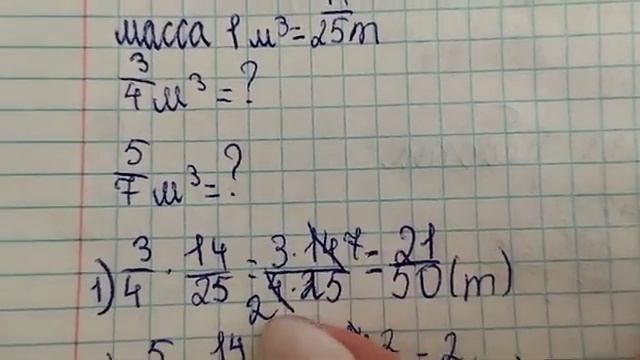 масса 1 м³ = 14/25 т
3/4 м³ = ?
5/7 м³ = ?
1) 3/4 · 14/25 = 3·14 7/2 4·25 = 21/50 (т)
5 14 2 - 2